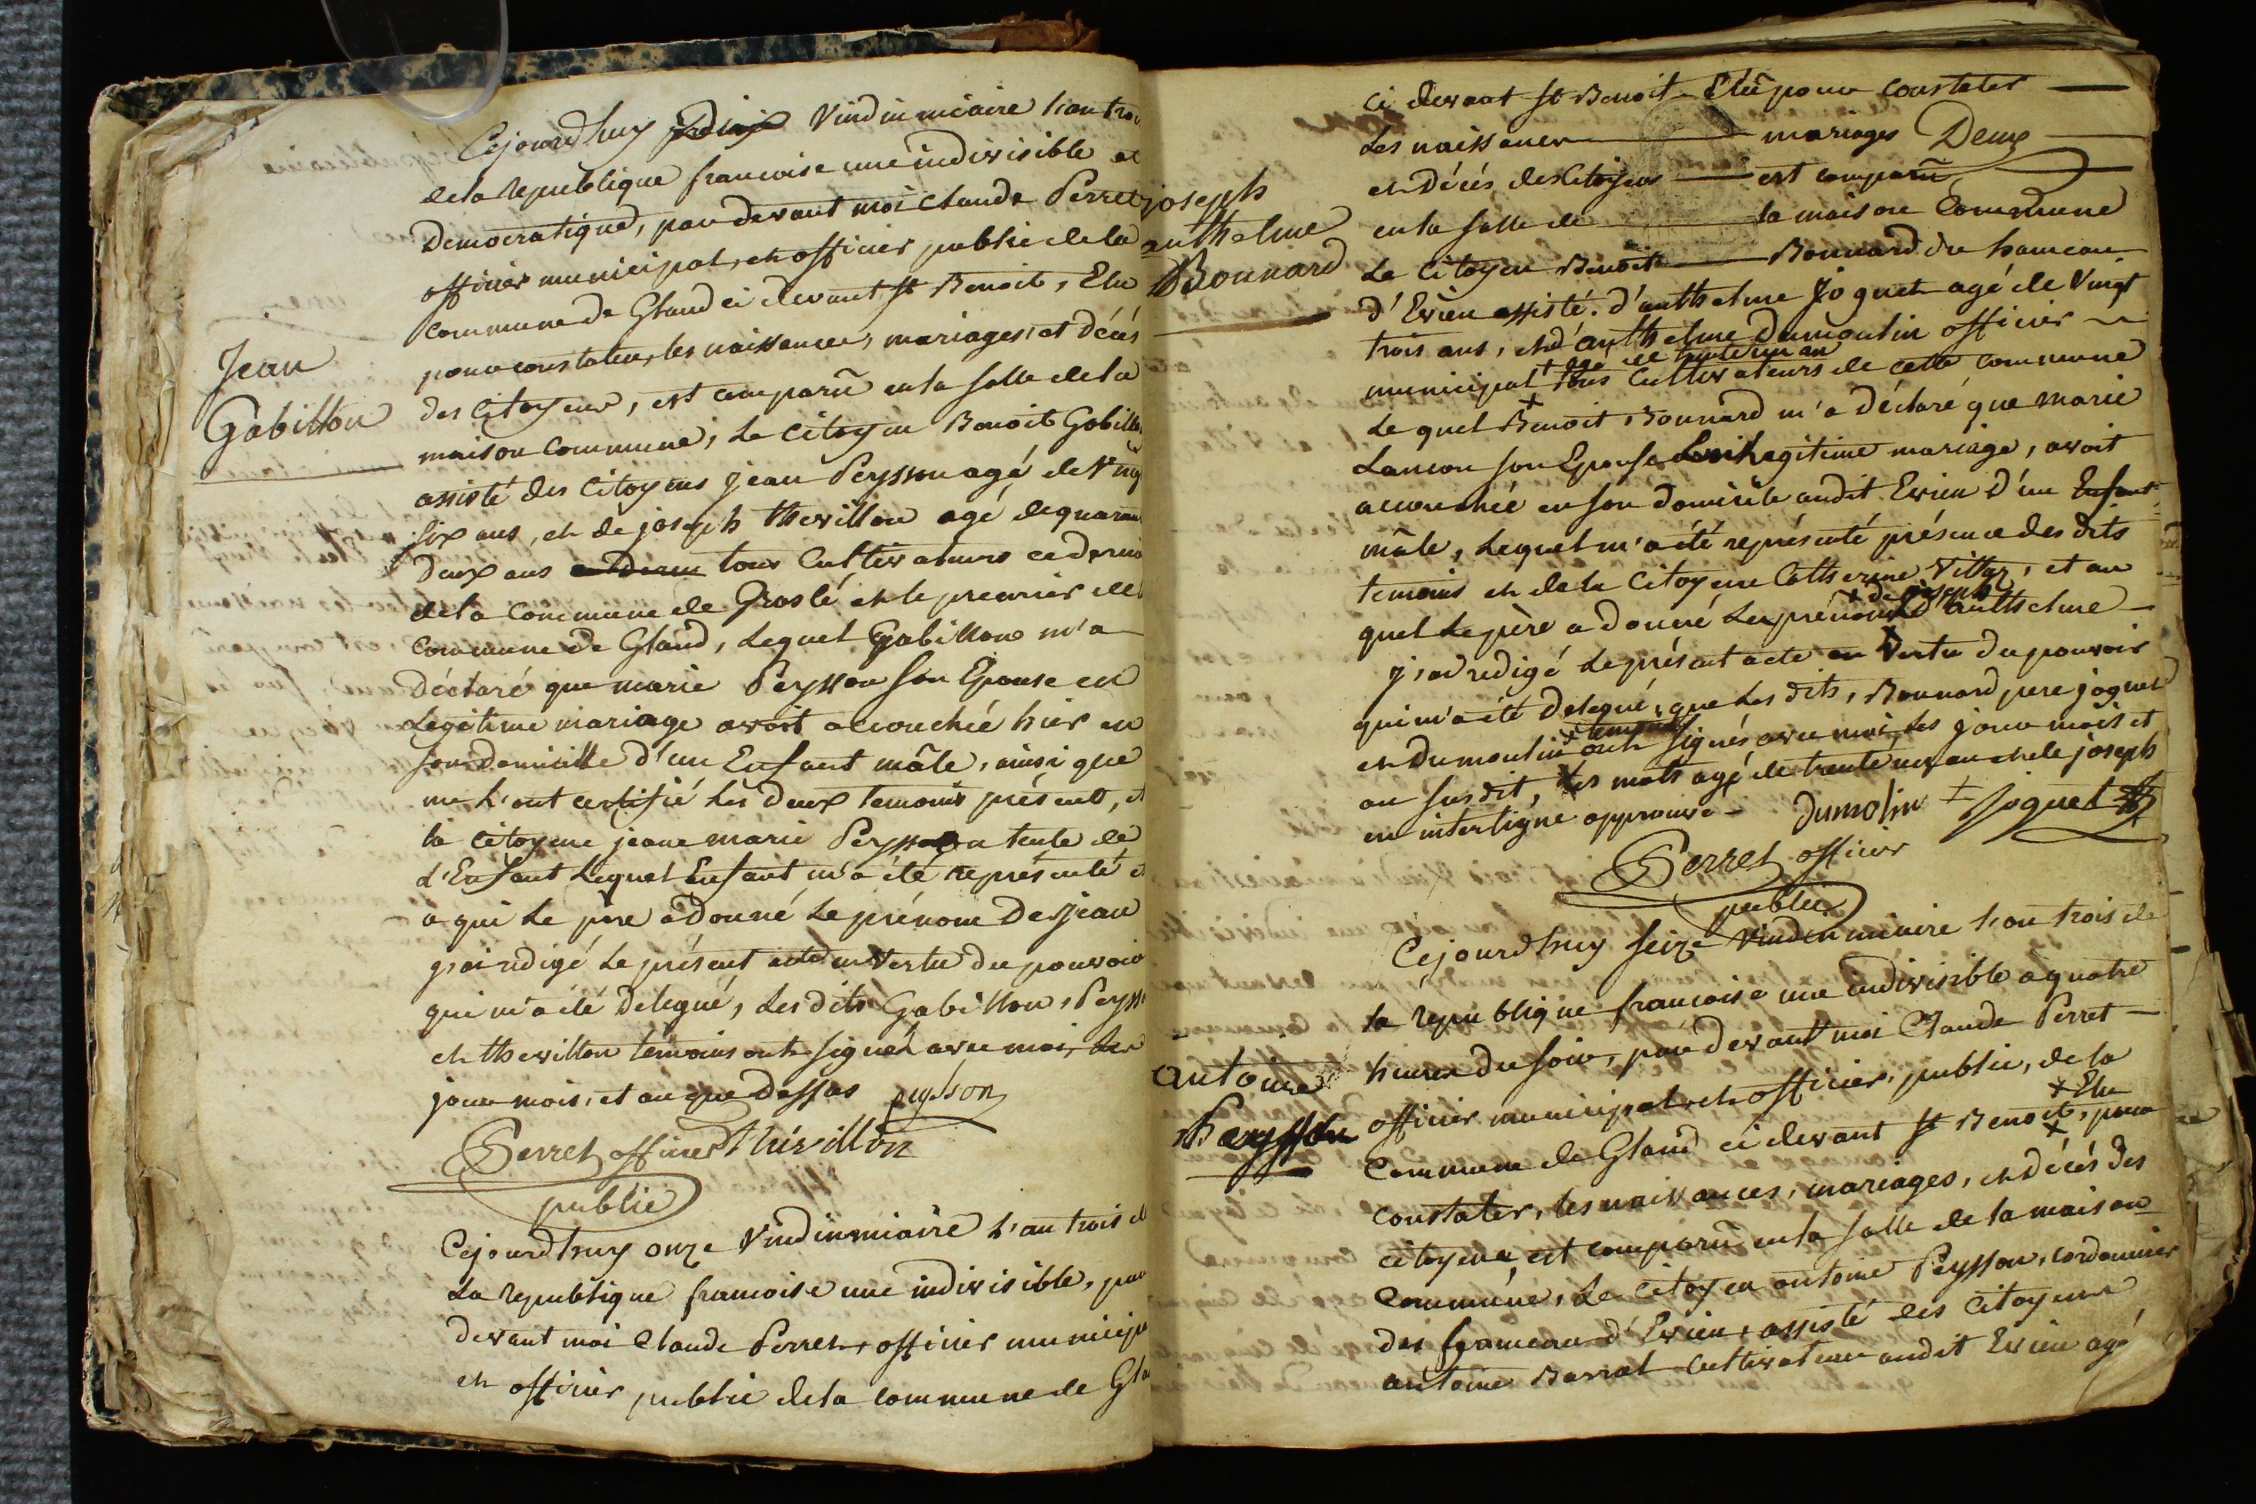 Cejourdhuy Vindinmiaire l'an trois
dela republique francoise une indivisible et
Democratique, par devant moi Claude Perret
officier municipal, et officier public de la
commune de Gland ci devant st Benoit, Elu
pour constater, les naissances, mariages, et décés
des Citoyens, est comparû en la salle de la
maison commune, Le Citoyen Benoit Gabillon
assisté des Citoyens Jean Peysson agé de vingt
six ans, et de joseph thevillon agé de quarante
Deux ans tous Cultivateurs ce dernier
dela commune de Groslé et le premier de
commune de Gland, Lequel Gabillon m'a
Déclaré que marie Peysson son Epouse en
Légitime mariage avoit accouchée hier en
son domicille d'un Enfant mâle, ainsi que
me l'ont certifié les deux temoins présents, et
la citoyene jeane marie Peysson tente de
L'Enfant Lequel Enfant m'a été représenté et
a qui le père a donné le prénom De jean
j'ai redigé le présent acte en vertu du pouvoir
qui m'a été delegué, les dits Gabillon, Peysson
et thevillon témoins ont signés avec moi, les
jour mois, et an que dessus peysson
Perret officier Thévillon
public
Cejourdhuy onze Vindinmiaire l'an trois de
La republique francoise une indivisible, par
devant moi Claude Perret, officier municipal
et officier public dela commune de Gland
Jean
Gabillon
ci devant st Benoit Elû pour constater
Les naissances mariages Deux
et décés des Citoyens est comparû
en la salle de la maison Commune
Le Citoyen Benoit Bonnard du hameau
d'Evieu assisté. d'anthelme Joguet agé de vingt
trois ans, et d'anthelme Dumoulin officier
+ agé de trente un an
municipal + tous Cultivateurs de cette commune
Le quel Benoit Bonnard m'a déclaré que marie
Lancon son Epouse En Legitime mariage, avoit
accouchée en son domicile audit Evieu d'un Enfant
mâle, Lequel m'a été représenté présence des dits
temoins et de la Citoyene Catherine Vittoz, et au
+ de joseph
quel Le père a donné Les prénoms d'anthelme
j'ai redigé le présent acte en vertu du pouvoir
qui m'a été delegué, que les dits, Bonnard pere joguet
+ temoins
et Dumoulin ont signés avec moi, les jour mois et
an susdit, les mots agé de trente un an et de joseph
en interligne approuvé - Dumolin Joguet
Perret officier
public
joseph
anthelme
Bonnard
Cejourdhuy seize vindinmiaire l'an trois de
la republique francoise une indivisible a quatre
heures du soir, par devant moi Claude Perret
officier municipal, et officier, public, de la
+ Elu
commune de Gland ci devant st Benoit, pour
constater, les naissances, mariages, et décés des
citoyens, est comparû en la salle de la maison
commune, Le citoyen antoine Peysson, cordonnier
du hameau d'Evieu, assisté des citoyens
antoine Barral cultivateur audit Evieu agé
antoine
Peysson